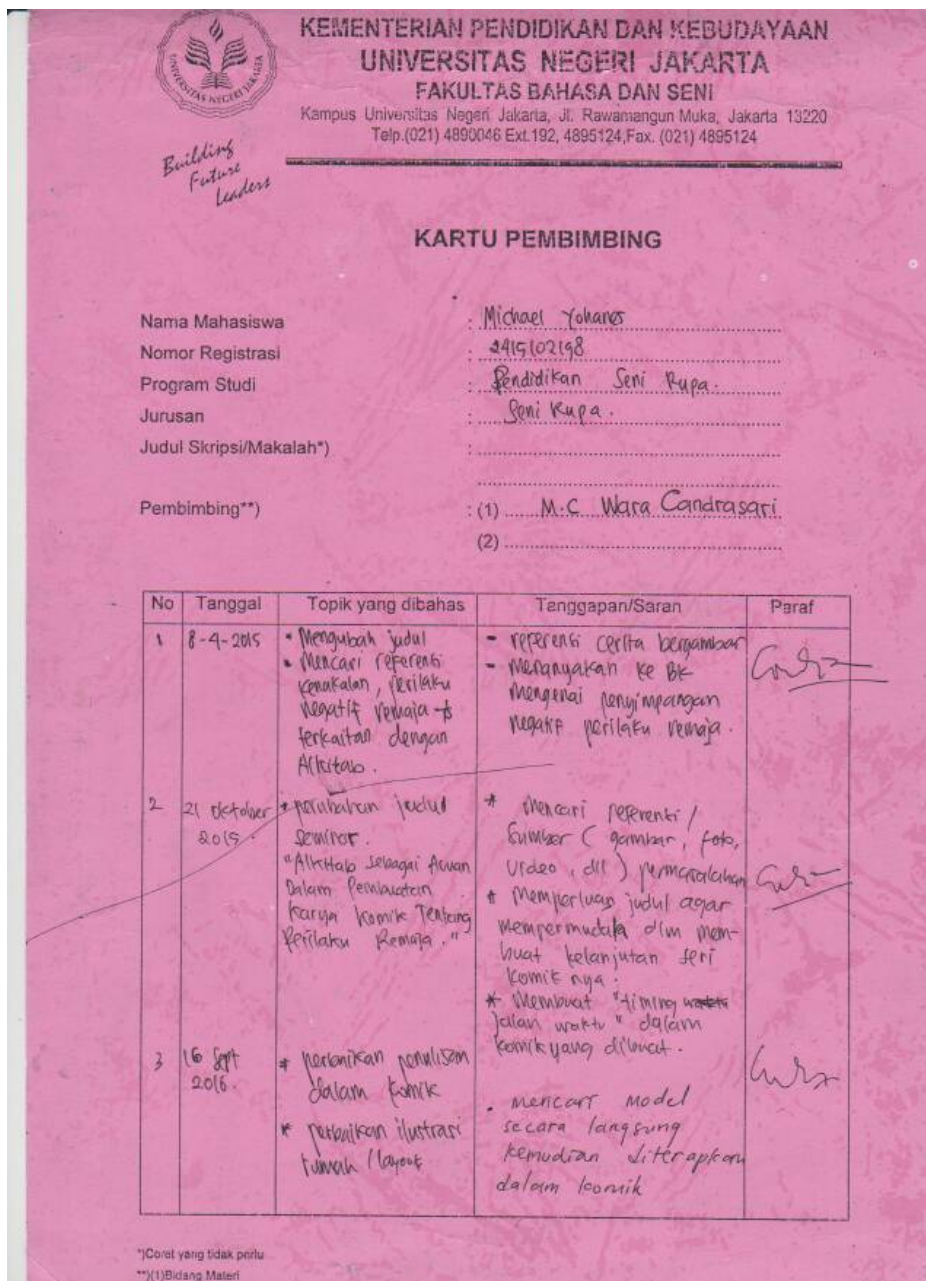 UNIVERSITAS NEGERI JAKARTA
KEMENTERIAN PENDIDIKAN DAN KEBUDAYAAN
UNIVERSITAS NEGERI JAKARTA
FAKULTAS BAHASA DAN SENI
Kampus Universitas Negeri Jakarta, Jl. Rawamangun Muka, Jakarta 13220
Telp.(021) 4890046 Ext.192, 4895124,Fax. (021) 4895124
Building
Future
Leaders
KARTU PEMBIMBING
Nama Mahasiswa : Michael Yohanes
Nomor Registrasi : 2415102198
Program Studi : Pendidikan Seni Rupa.
Jurusan : Seni Rupa.
Judul Skripsi/Makalah*) :
Pembimbing**) : (1) M.C Wara Candrasari
(2)
No Tanggal Topik yang dibahas Tanggapan/Saran Paraf
1 8-4-2015
• Mengubah judul
• Mencari referensi
kenakalan, perilaku
negatif remaja
terkaitan dengan
Alkitab.
- referensi cerita bergambar
- menanyakan ke BK
mengenai penyimpangan
negatif perilaku remaja.
2 21 Oktober
2015.
* perubahan judul
seminar.
"Alkitab sebagai Acuan
Dalam Pembuatan
Karya Komik Tentang
Perilaku Remaja."
* Mencari referensi /
Sumber ( gambar, foto,
video, dll ) permasalahan
* Memperluas judul agar
mempermudah dlm mem-
buat kelanjutan seri
komik nya.
* Membuat "timing waktu
jalan waktu" dalam
komik yang dibuat.
3 16 Sept
2016.
* perbaikan penulisan
dalam komik
* perbaikan ilustrasi
rumah / layout
• mencari model
secara langsung
kemudian diterapkan
dalam komik
*)Coret yang tidak perlu
**)(1)Bidang Materi